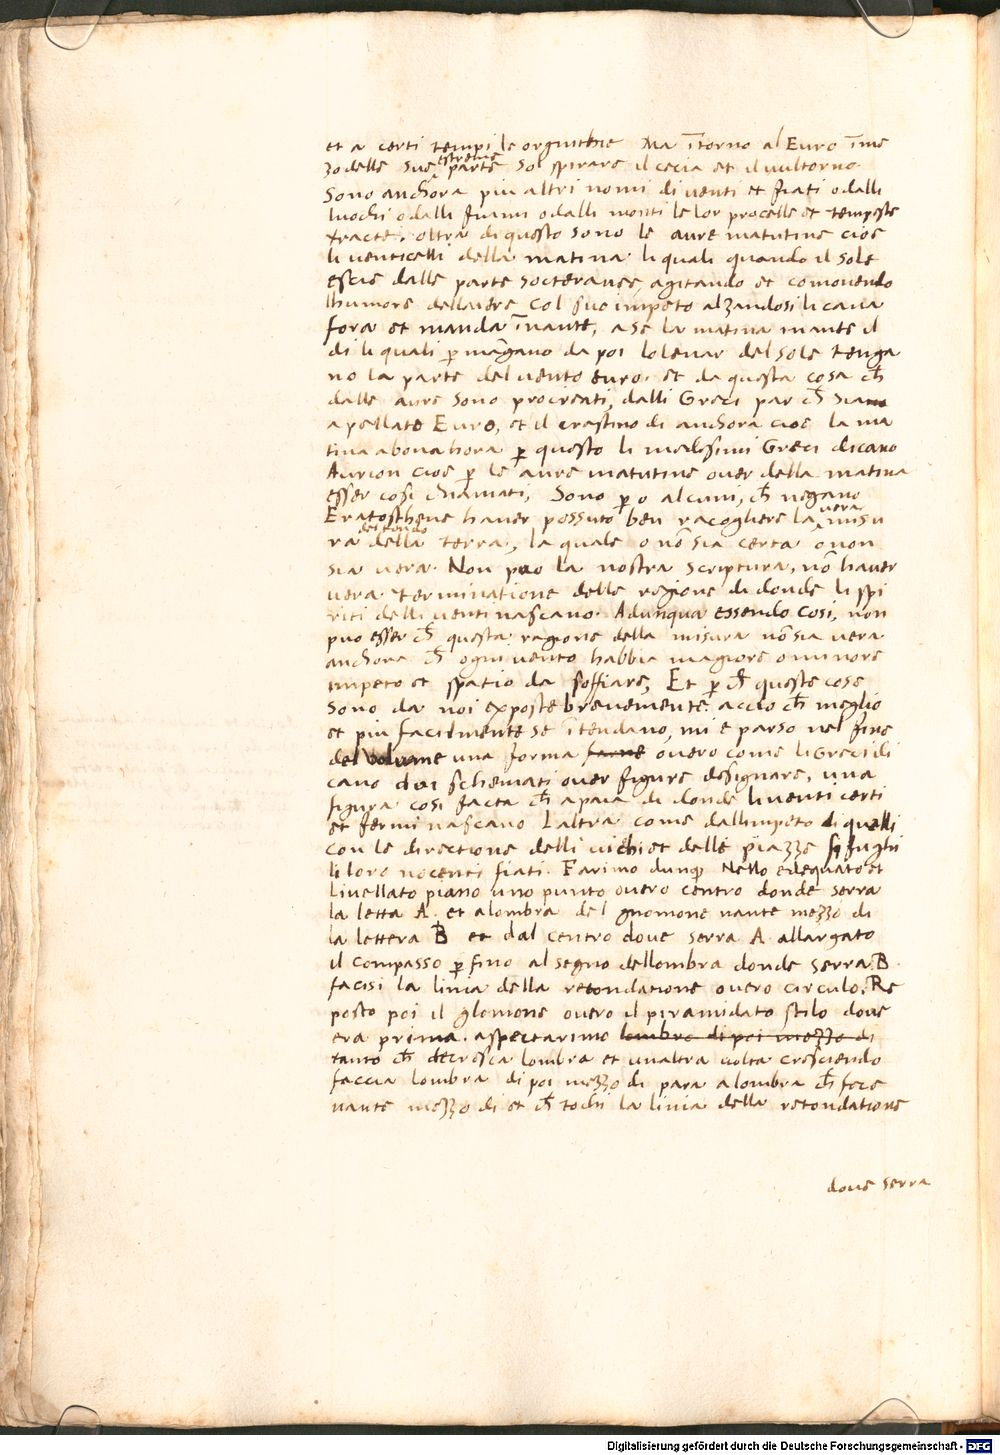 et a certi tempi le orgnithie Ma ītorno al Euro ī me
zo delle sue estreme parte sol spirare il cecia et il vulturno
Sono anchora piu altri nomi di venti et fiati o dalli
luochi o dalli fiumi o dalli monti le lor procelle et tempeste
tracte. oltra di questo sono le aure matutine cioe
li venticelli della matina li quali quando il sole
escie dalle parte socteranee, agitando et comovendo
lhumore dellaere col suo impeto alzandosi li cava
fora et manda īnante, a se la matina inante il
di li quali p māgano da poi lo levar del sole tenga
no la parte del vento euro. et da questa cosa ch̄
dalle aure sono procreati, dalli Greci par ch̄ sia
apellato Euro, et il crastino di anchora cioe la ma
tina a bona hora p questo li medesimi Greci dicano
Aurion cioe p le aure matutine over della matina
esser cosi chiamati, Sono po alcuni, ch̄ negano
Eratosthene haver possuto ben racogliere la vera misu
ra del tondo della terra, la quale o nō sia certa o non
sia vera. Non puo la nostra scriptura, nō haver
vera terminatione delle regione di donde li spi
riti delli venti nascano. Adunqua essendo cosi, non
puo esser ch̄ questa ragione della misura nō sia vera
anchora ch̄ ogni vento habbia magiore o minore
impeto et spatio da soffiare, Et p ch̄ queste cose
sono da noi exposte brevemente accio ch̄ meglio
et piu facilmente se ītendano, mi e parso nel fine
del volume una forma farne overo come li Greci di
cano doi schemati over figure designare, una
figura cosi facta ch̄ apaia di donde li venti certi
et fermi nascano Laltra come dallimpeto di quelli
con le directione delli vichi et delle piazze si fughi
li loro nocenti fiati. Farimo dunq Nello edequato et
livellato piano uno punto overo centro donde serra
la lettā A. et a lombra del gnomone nante mezzo di
la lettera B et dal centro dove serra A allargato
il compasso p fino al segno dellombra donde serra B.
facisi la linia della retondatione overo circulo. Re
posto poi il glomone overo il piramidato stilo dove
era prima. aspectarimo lombra di poi mezzo di
tanto ch̄ decresca lombra et unaltra volta cresciendo
faccia lombra di poi mezzo di para a lombra ch̄ fece
nante mezzo di et ch̄ tochi la linia della retondatione
dove serra
Digitalisierung gefördert durch die Deutsche Forschungsgemeinschaft - DFG